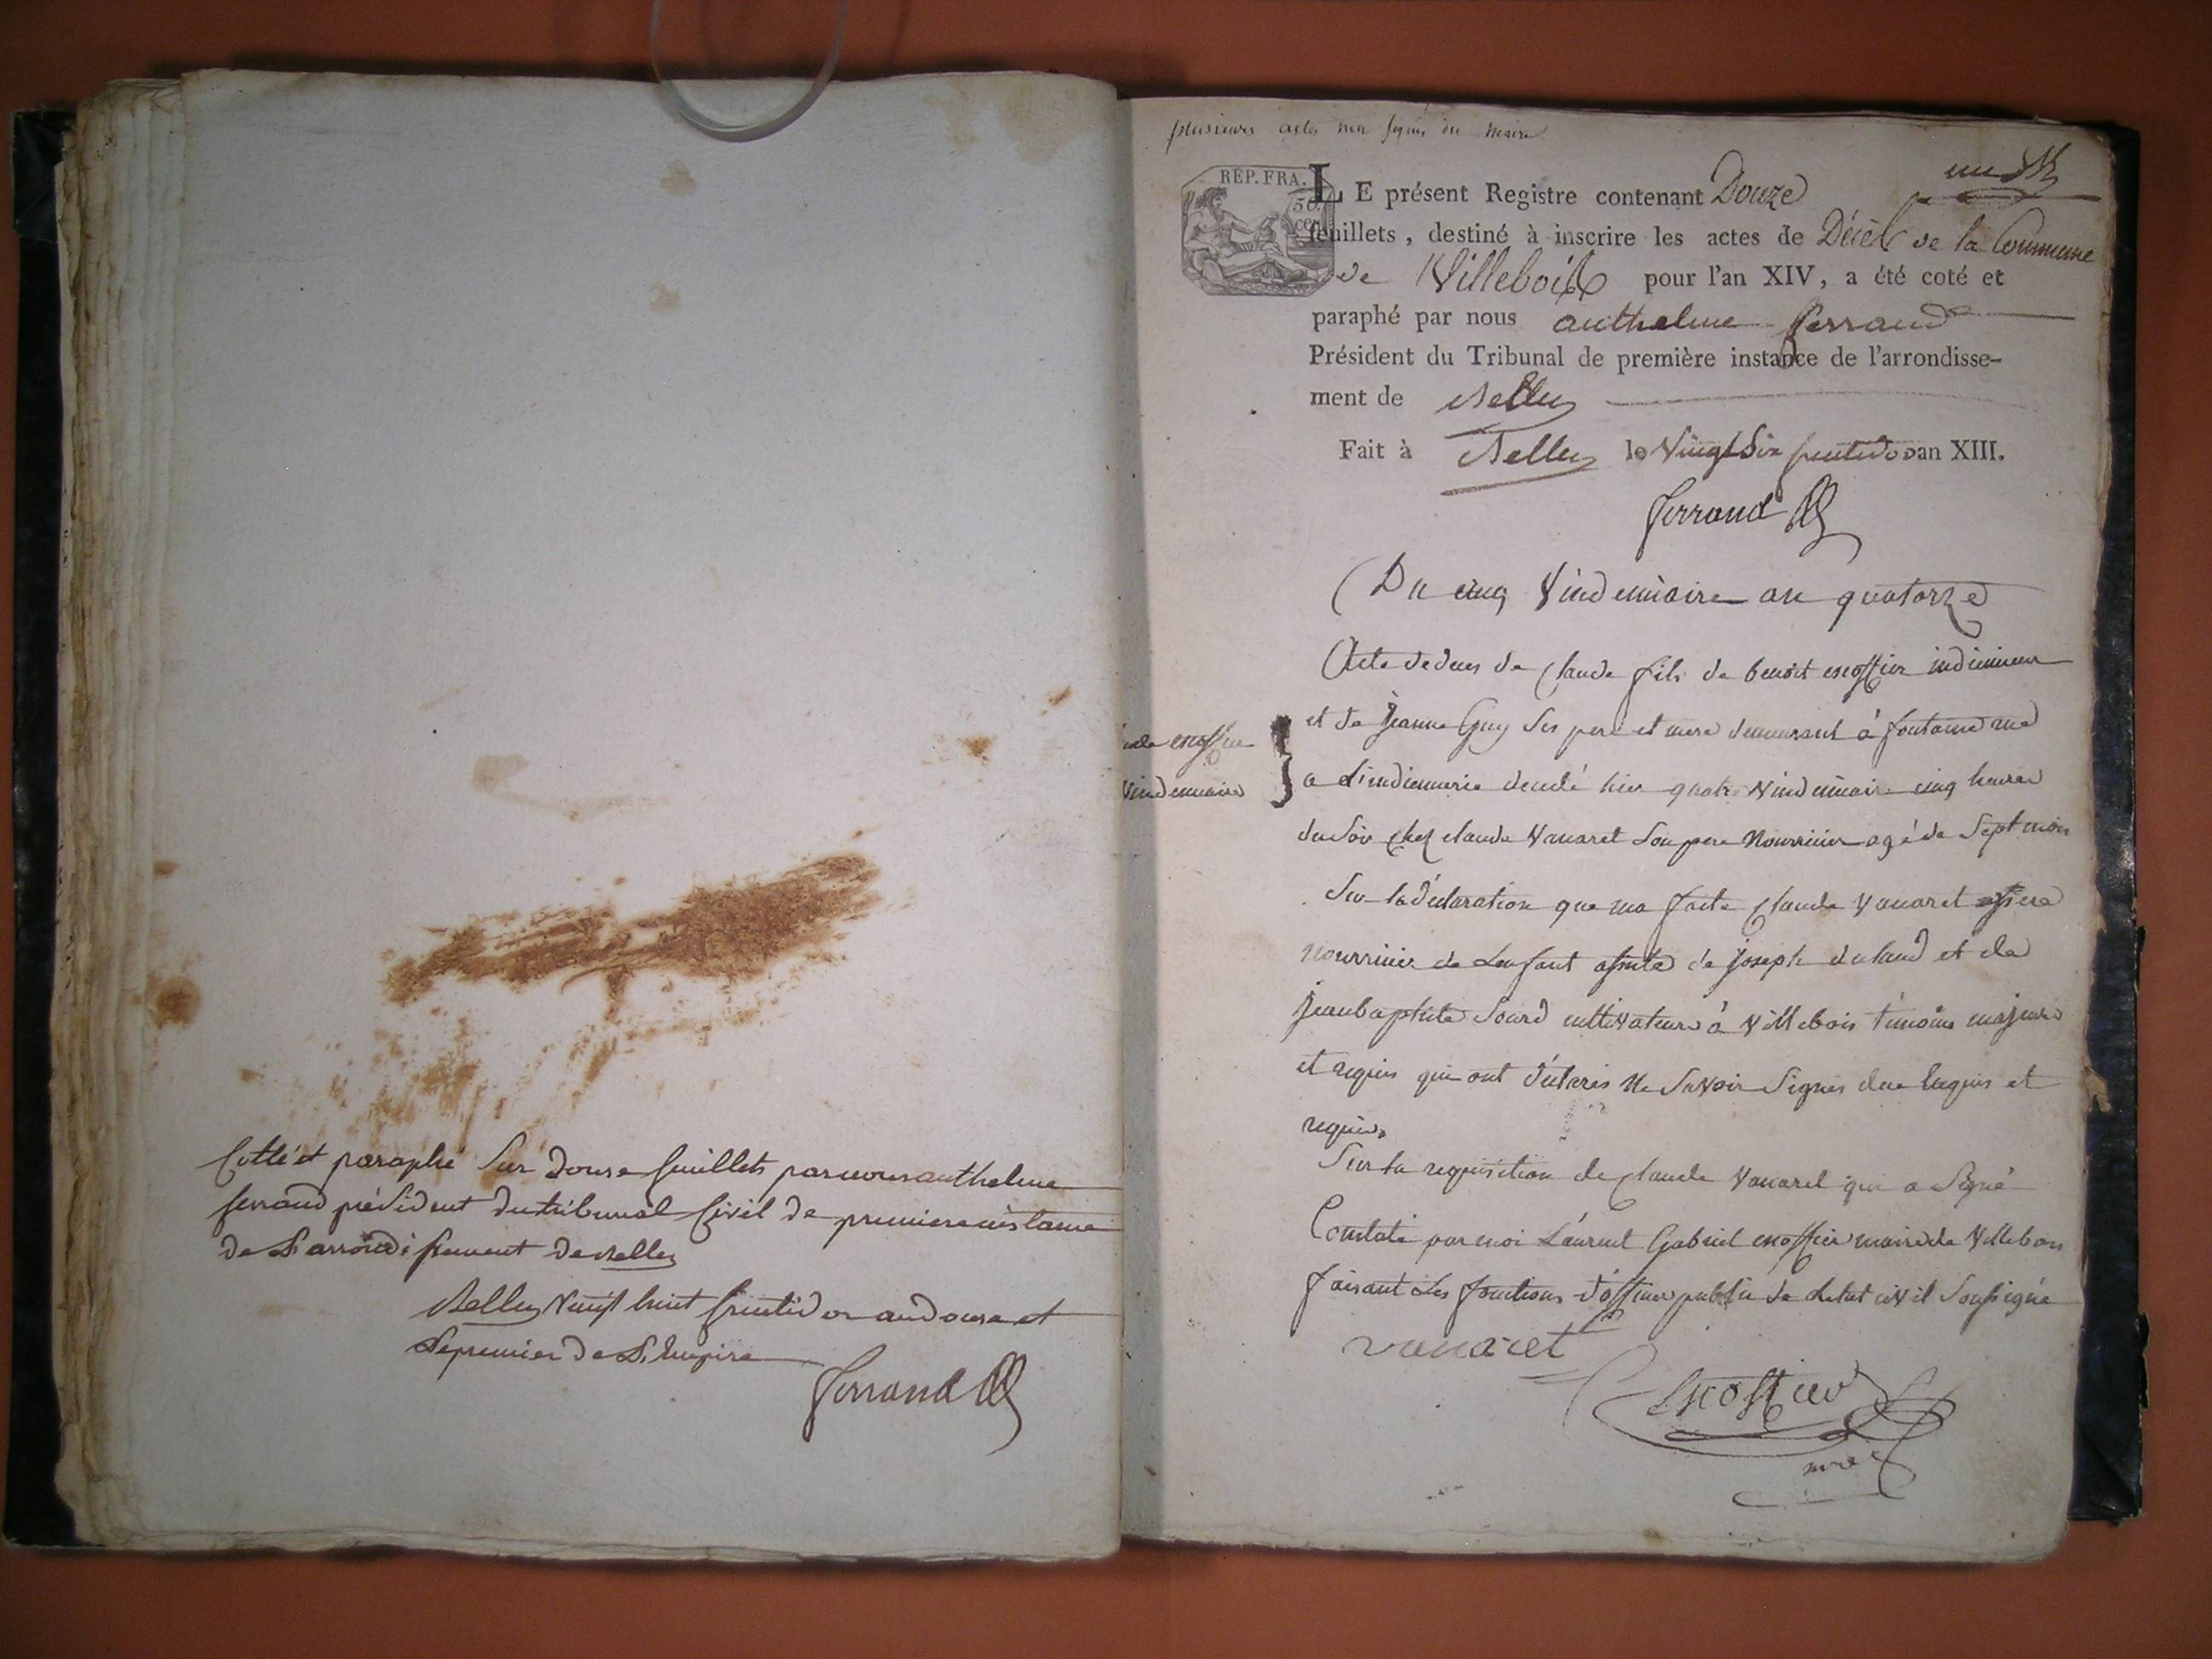 Cotté et paraphé Sur Douse feuillets par nous anthelme
ferrand président du tribunal Civil de premiere instance
de L'arrondissement de Belley
Belley Vingt huit fructidor an douse et
Le premier De L'Empire
ferrand
plusieurs actes non signés du maire
un
REP. FRA.
50
cen
LE présent Registre contenant Douze
feuillets, destiné à inscrire les actes de Décès de la Commune
de Villebois pour l'an XIV, a été coté et
paraphé par nous anthelme ferrand
Président du Tribunal de première instance de l'arrondisse-
ment de Belley
Fait à Belley le Vingt Six fructidor an XIII.
ferrand
Du cinq Vindemiaire an quatorze
Acte de deces de Claude fils de benoit escoffier indienneur
et de Jeanne Guy Ses pere et mere demeurant à fontaine
escoffier
Vindemiaire
a L'indiennerie decedé hier quatre Vindemiaire cinq heures
du Soir chez claude Vanaret Son pere Nourricier agé de Sept mois
Sur la déclaration que ma faite Claude Vanaret
nourricier de Lenfant assisté de joseph et de
jean baptiste Sourd cultivateurs à Villebois témoins majeurs
et requis qui ont déclarés Ne Savoir Signer de ce Enquis et
requis
Sur la requisition de Claude Vanaret qui a Signé
Constaté par moi Laurent Gabriel escoffier maire de Villebois
faisant Les fonctions d'officier public de Letat civil Soussigné
vanaret
Escoffier